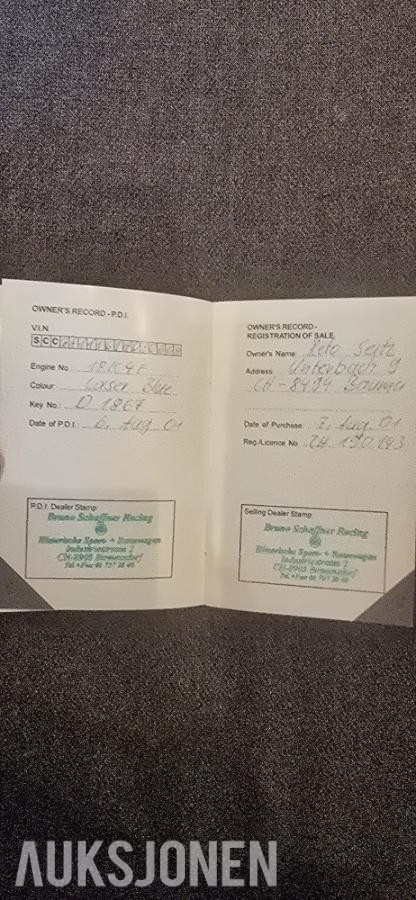 OWNER'S RECORD - P.D.I.
V.I.N.
SCC
Engine No 18K4F
Colour Laser Blue
Key No. D 1867
Date of P.D.I. 6. Aug 01
P.D.I. Dealer Stamp
Bruno Schaffner Racing
Historische Sport- + Rennwagen
Industriestrasse 2
CH-8903 Birmensdorf
Tel + Fax 01 737
OWNER'S RECORD -
REGISTRATION OF SALE
Owner's Name Reto Seitz
Address 9
CH - 8494 Bauma
Date of Purchase 7. Aug. 01
Reg./Licence No. ZH 190 193
Selling Dealer Stamp
Bruno Schaffner Racing
Historische Sport- + Rennwagen
Industriestrasse 2
CH-8903 Birmensdorf
Tel + Fax 01 737
AUKSJONEN